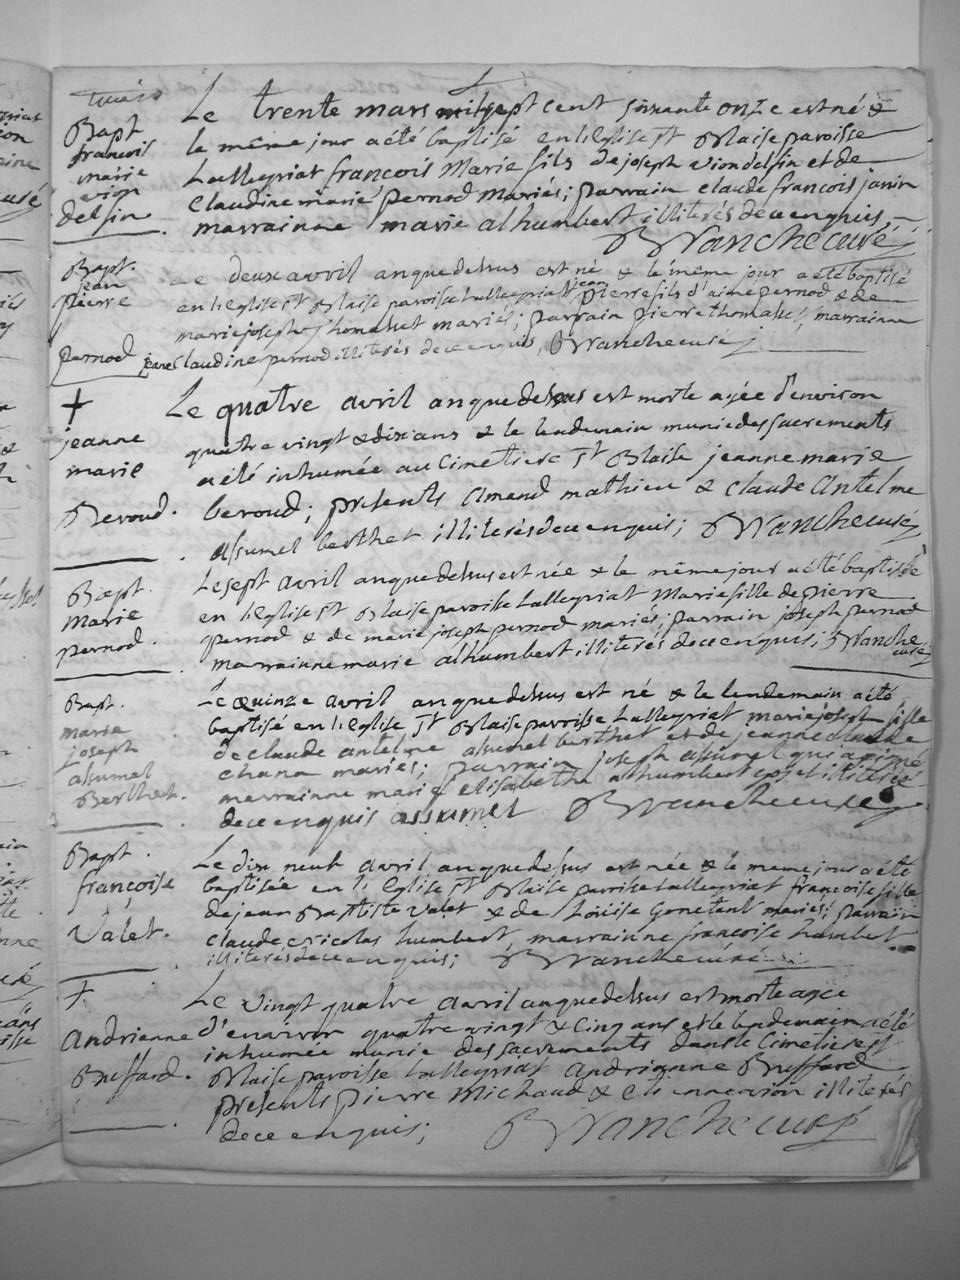 Bapt
francois
marie
vion
delfin
Le trente mars mil sept cent soixante onze est né &
le même jour a été baptisé en l'eglise st Blaise paroisse
Lalleyriat francois Marie fils de joseph vion delfin et de
Claudine marie pernod mariés; parrain claude francois janin
marrainne marie alhumbert illiterés de ce enquis,
B Vranche curé
Bapt.
jean
pierre
pernod
Le deux avril an que dessus est né & le même jour a été baptisé
en l'eglise st Blaise paroisse Lalleyriat jean pierre fils d'aimé pernod & de
marie joseph thomasset mariés; parrain pierre thomasset, marrainne
jeanne Claudine pernod illiterés de ce enquis, B Vranche curé
+
jeanne
marie
Beroud.
Le quatre avril an que dessus est morte agée d'environ
quatre vingt & dix ans & le lendemain munie des sacrements
a été inhumée au cimetiere st Blaise jeanne marie
beroud; présents amand mathieu & claude antelme
assumel berthet illiterés de ce enquis; B Vranche curé
Bapt.
marie
pernod.
Le sept avril an que dessus est née & le même jour a été baptisée
en l'eglise st Blaise paroisse Lalleyriat Marie fille de pierre
pernod & de marie joseph pernod mariés; parrain joseph pernod
marrainne marie alhumbert illiterés de ce enquis; B Vranche
curé
Bapt.
marie
joseph
assumel
Berthet.
Le quinze avril an que dessus est né & le lendemain a été
baptisé en l'eglise st Blaise paroisse Lalleyriat marie joseph fille
de claude antelme assumel berthet et de jeanne claudine
chana mariés; parrain joseph assumel qui a signé
marrainne marie elisabeth alhumbert illiterée
de ce enquis assumel B Vranche curé
Bapt.
françoise
Valet.
Le dix neuf avril an que dessus est née & le meme jour a été
baptisée en l'eglise st Blaise paroisse Lalleyriat françoise fille
de jean Baptiste Valet & de Louise Gonetant mariés; parrain
claude nicolas humbert, marrainne françoise humbert
illiterés de ce enquis; B Vranche curé
+
Andrienne
Buffard.
Le vingt quatre avril an que dessus est morte agée
d'environ quatre vingt & cinq ans et le lendemain a été
inhumée munie des sacrements dans le cimetiere st
Blaise paroisse Lalleyriat andrienne Buffard
présents pierre Michaud & etienne vion illiterés
de ce enquis; B Vranche curé